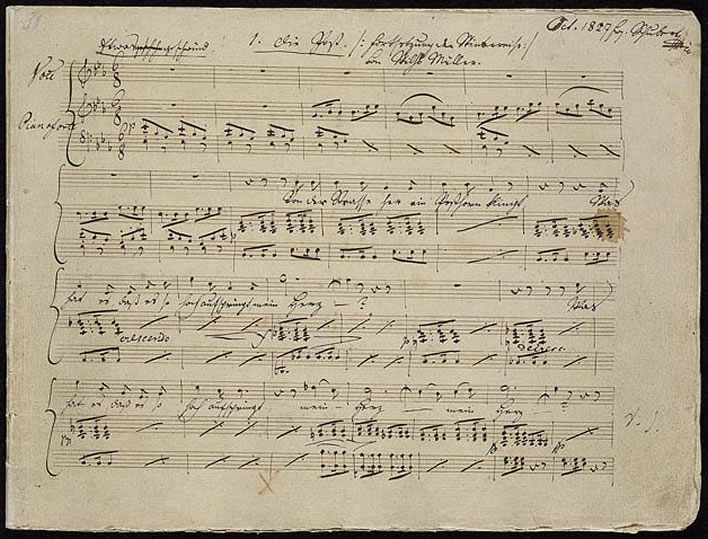 Oct. 1827 Fr. Schubert
Etwas geschwind
1. Die Post. /: Fortsetzung der Winterreise :/
von Wilh. Müller.
Voce
Pianoforte
Von der Strasse her ein Posthorn klingt Was
hat es daß es so hoch aufspringt mein Herz — ? Was
crescendo
decresc.
hat es daß es so hoch aufspringt mein — Herz — mein Herz — ?
V. S.